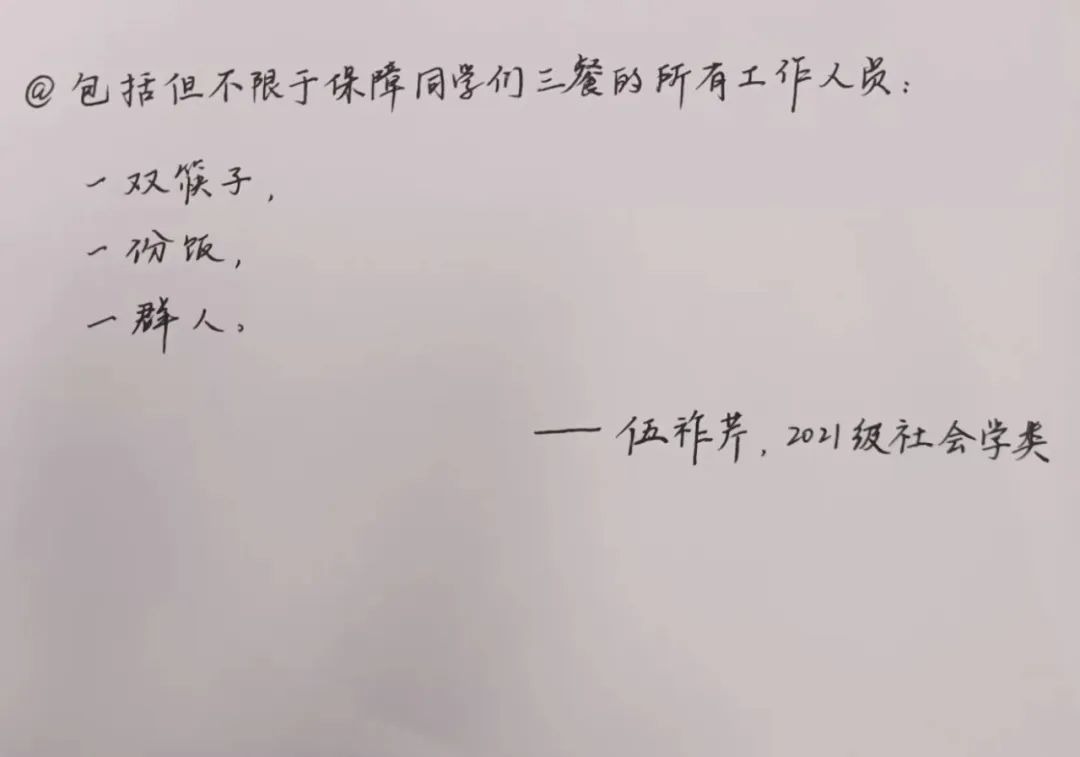 @包括但不限于保障同学们三餐的所有工作人员：
一双筷子，
一份饭，
一群人。
—— 伍祚芹，2021级社会学类